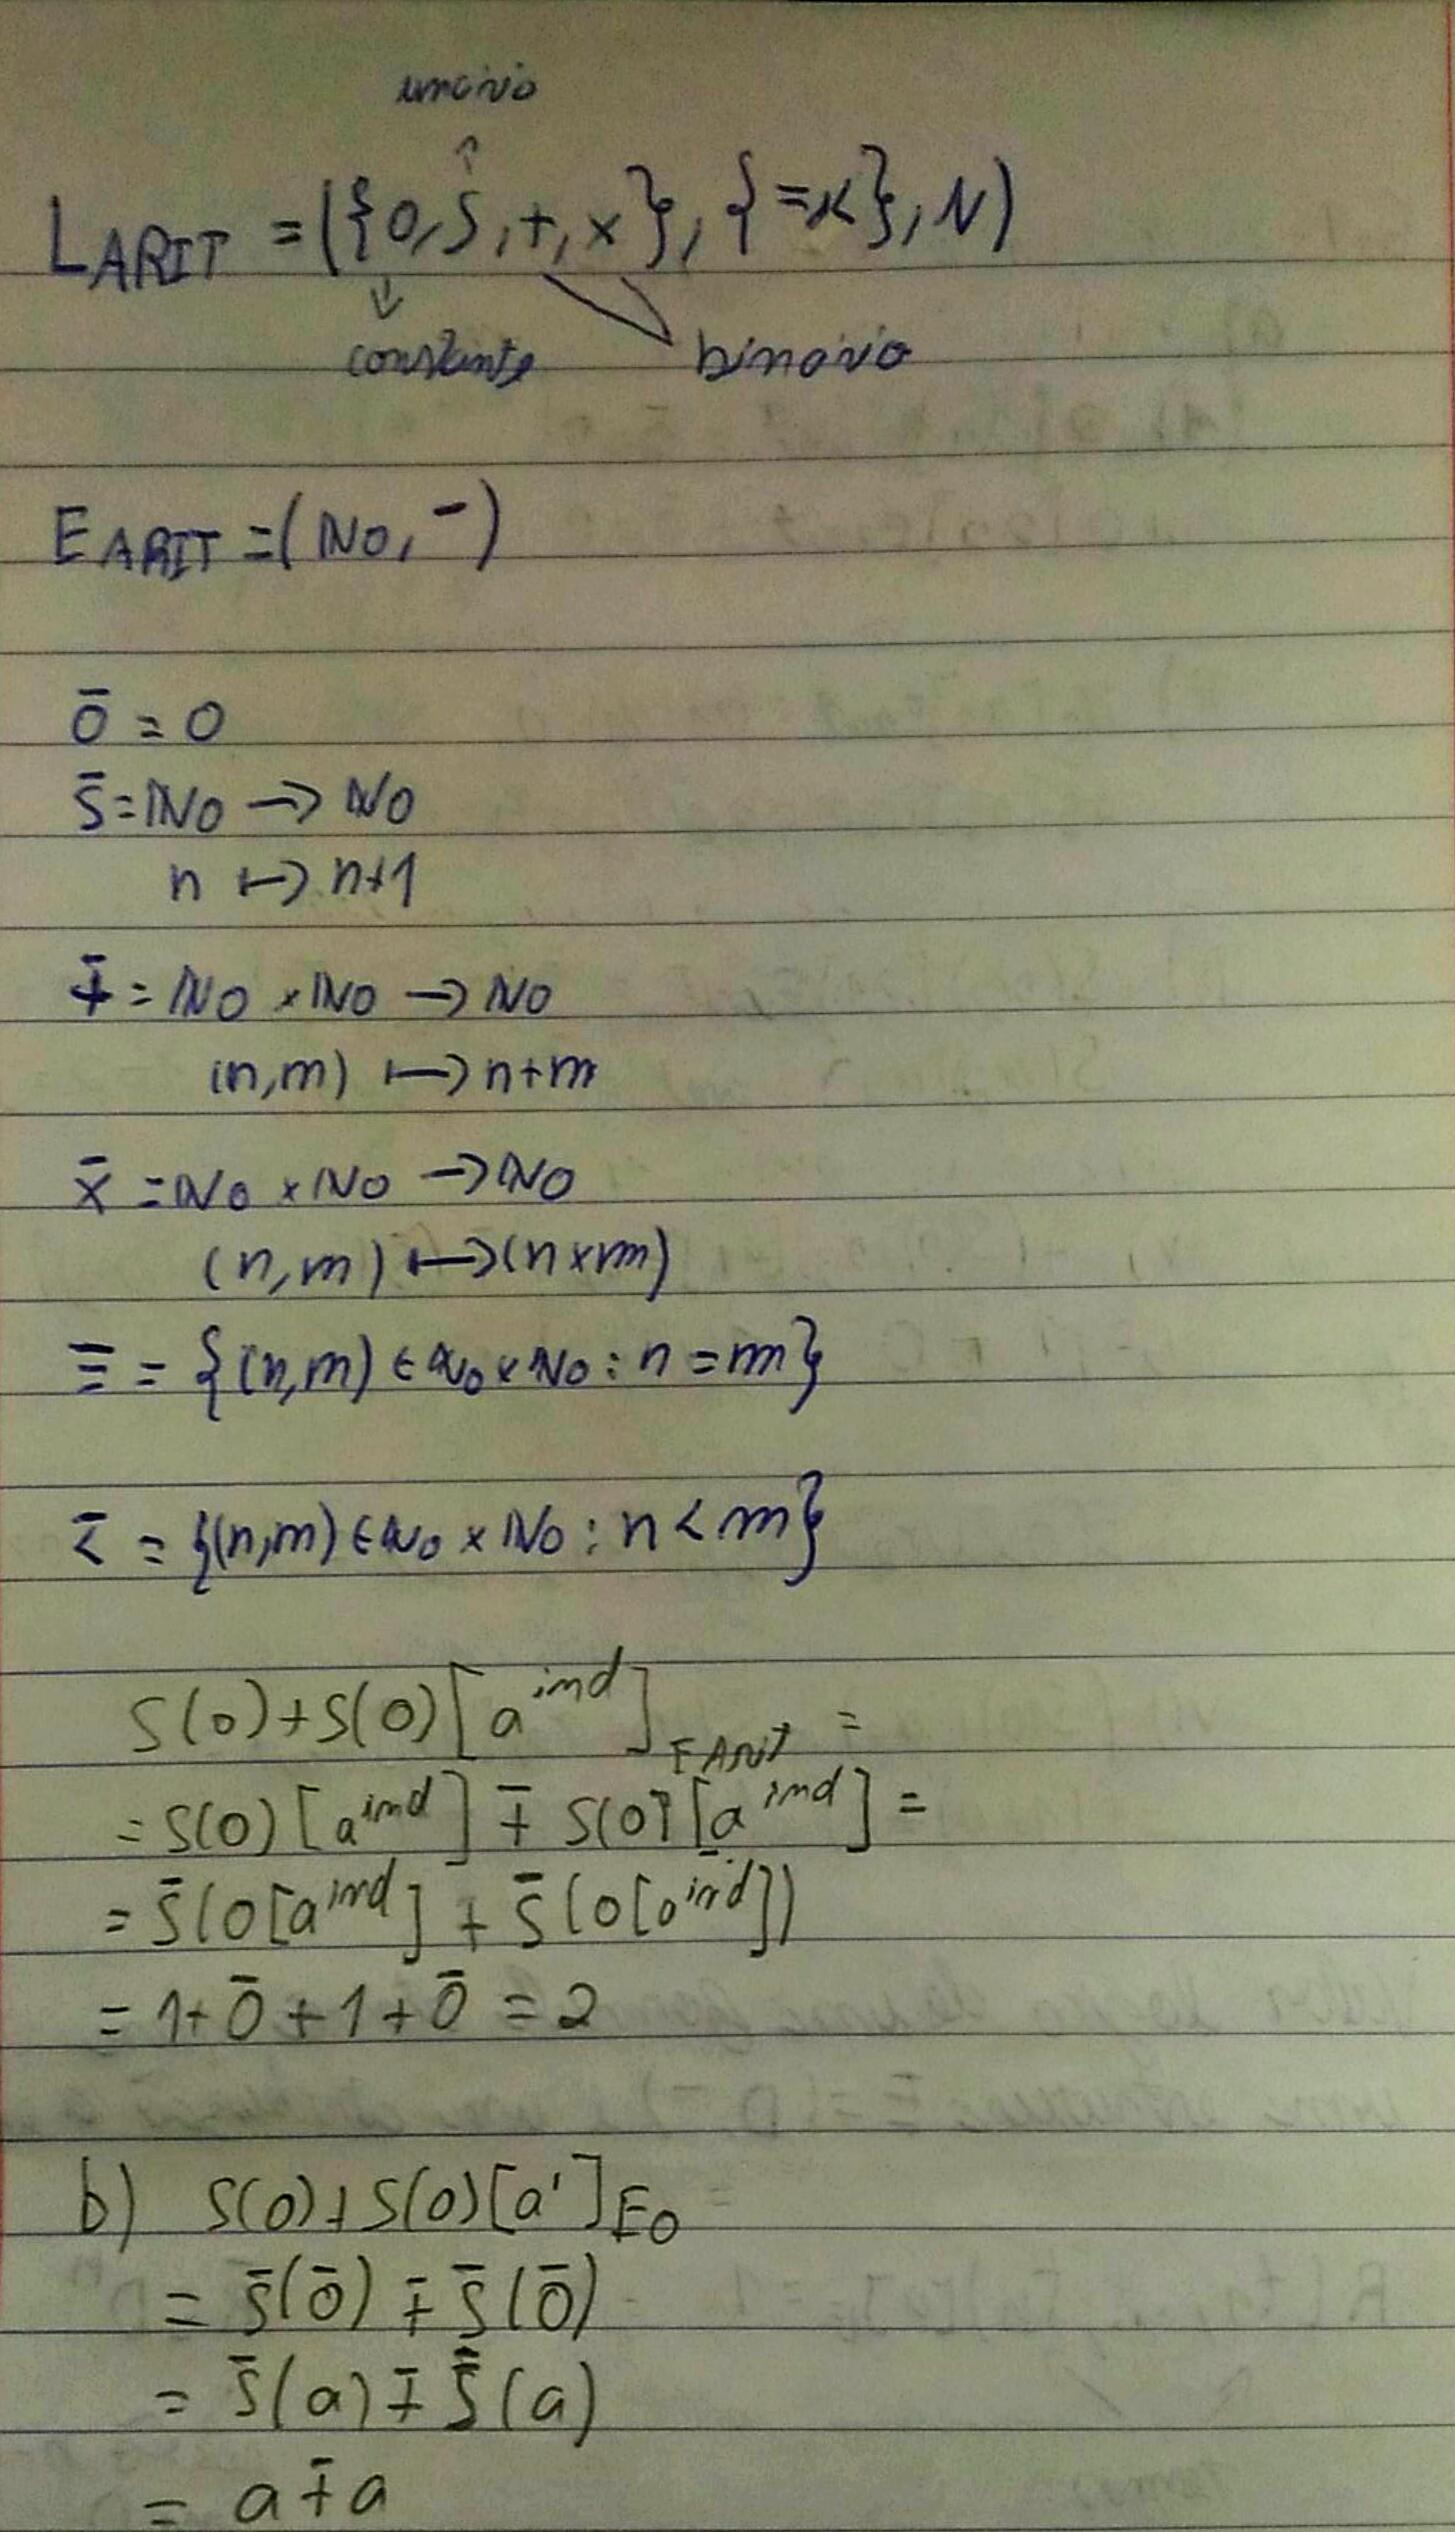 unário
L ARIT = ({0, S, +, x}, {=, <}, N)
constante binário
E ARIT = (IN0, -)
0̄ = 0
S̄ = IN0 → IN0
n ↦ n+1
+̄ = IN0 x IN0 → IN0
(n,m) ↦ n+m
x̄ = IN0 x IN0 → IN0
(n,m) ↦ (n x m)
=̄ = {(n,m) ∈ IN0 x IN0 : n = m}
<̄ = {(n,m) ∈ IN0 x IN0 : n < m}
S(0)+S(0)[a^ind]E ARIT =
= S(0)[a^ind] +̄ S(0)[a^ind] =
= S̄(0[a^ind] + S̄(0[a^ind])
= 1+0̄+1+0̄ = 2
b) S(0)+S(0)[a']E0
= S̄(0̄) +̄ S̄(0̄)
= S̄(a) +̄ S̄(a)
= a +̄ a